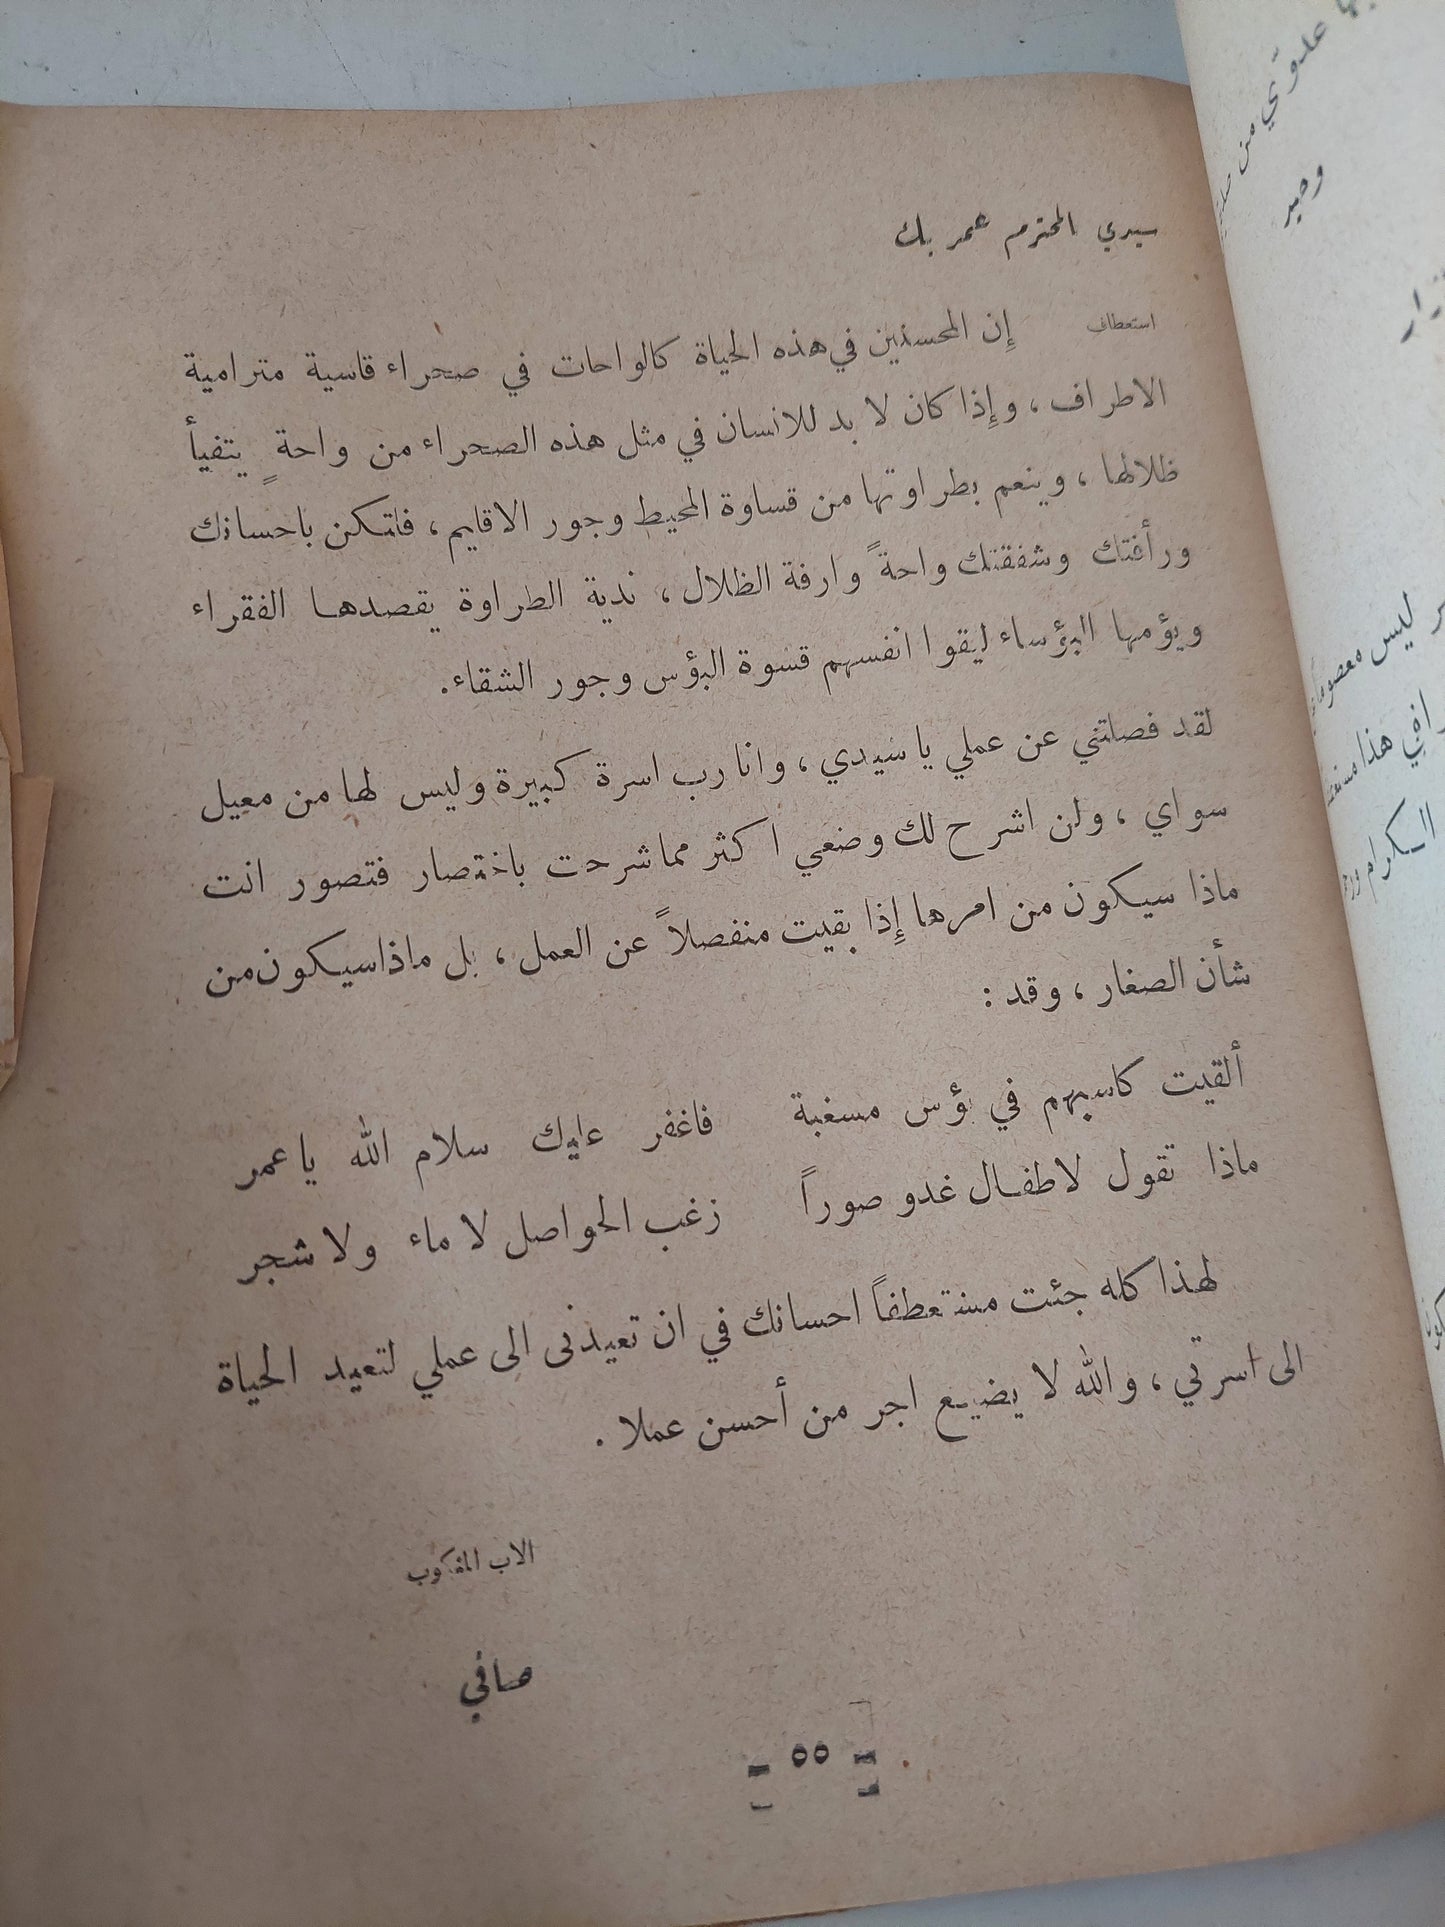 سيدي المحترم عمر بك
استعطاف
إِن المحسنين في هذه الحياة كالواحات في صحراء قاسية مترامية
الاطراف ، وإِذا كان لا بد للانسان في مثل هذه الصحراء من واحةٍ يتفيأ
ظلالها ، وينعم بطراوتها من قساوة المحيط وجور الاقليم ، فلتكن باحسانك
ورأفتك وشفقتك واحةً وارفة الظلال ، ندية الطراوة يقصدها الفقراء
ويؤمها البؤساء ليقوا انفسهم قسوة البؤس وجور الشقاء .
لقد فصلتني عن عملي يا سيدي ، وانا رب اسرة كبيرة وليس لها من معيل
سواي ، ولن اشرح لك وضعي اكثر مما شرحت باختصار فتصور انت
ماذا سيكون من امرها إِذا بقيت منفصلاً عن العمل ، بل ماذا سيكون من
شأن الصغار ، وقد :
ألقيت كاسبهم في بؤس مسغبة فاغفر عليك سلام الله يا عمر
ماذا تقول لاطفال غدو صوراً زغب الحواصل لا ماء ولا شجر
لهذا كله جئت مستعطفاً احسانك في ان تعيدنى الى عملي لتعيد الحياة
الى اسرتي ، والله لا يضيع اجر من أحسن عملا .
الاب المنكوب
صافي
- ٥٥ -
عدوّي من
وحيد
ليس معصوماً
في هذا
الكرام